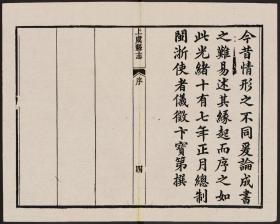 今昔情形之不同爰論成書
之難易述其緣起而序之如
此光緒十有七年正月總制
閩浙使者儀徵卞寶第撰
上虞縣志
序
四